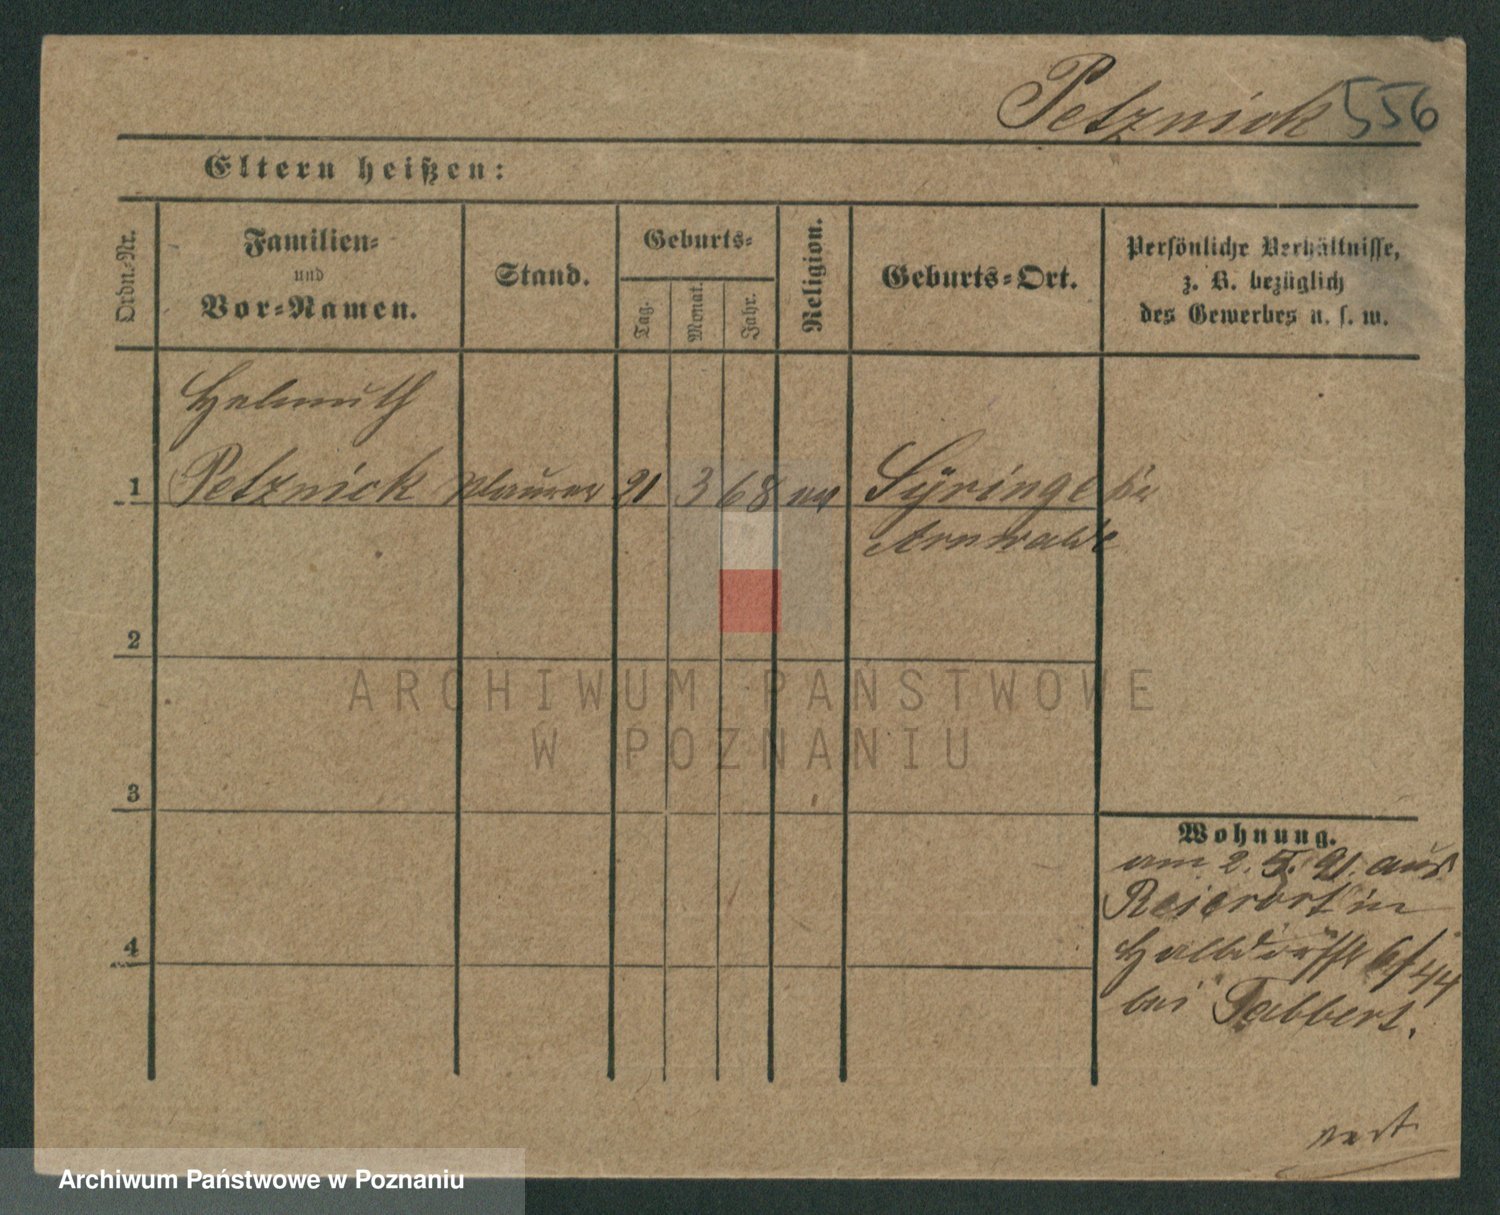 Petznick 556
Eltern heißen:
Ordn.-Nr.
Familien-
und
Vor-Namen.
Stand.
Geburts-
Tag.
Monat.
Jahr.
Religion.
Geburts-Ort.
Persönliche Verhältnisse,
z. B. bezüglich
des Gewerbes u. s. w.
Helmuth
1 Petznick 21 3 68 ev Syringe
Arnswalde
2
3
4
ARCHIWUM PAŃSTWOWE
W POZNANIU
Wohnung.
am 2. 5. 91. aus
in
6/44
bei Tabbert.
Archiwum Państwowe w Poznaniu